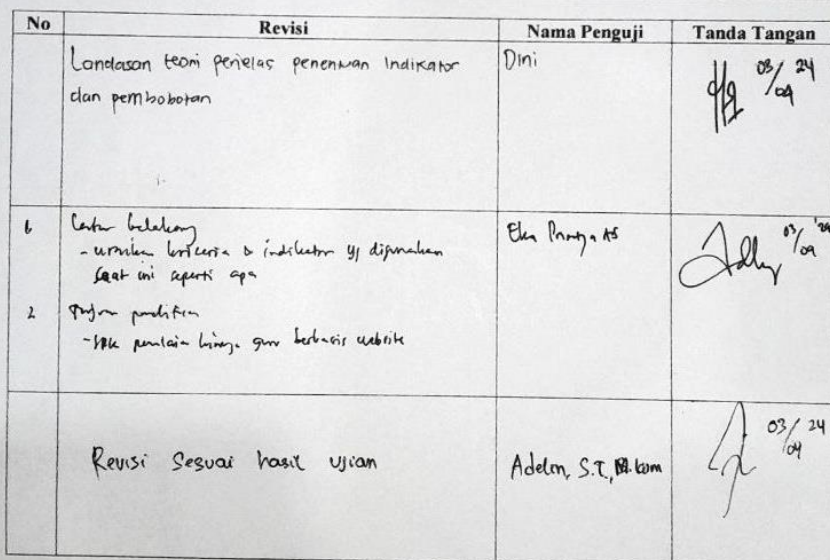 No Revisi Nama Penguji Tanda Tangan
Landasan teori perjelas penentuan indikator Dini 03/04 24
dan pembobotan
1 Latar belakang Eka 03/04 '24
- uraikan kriteria & indikator yg digunakan
saat ini seperti apa
2 Tujuan penelitian
- SPK penilaian kinerja guru berbasis website
Revisi Sesuai hasil ujian Adelin, S.T, M.kom 03/04 24